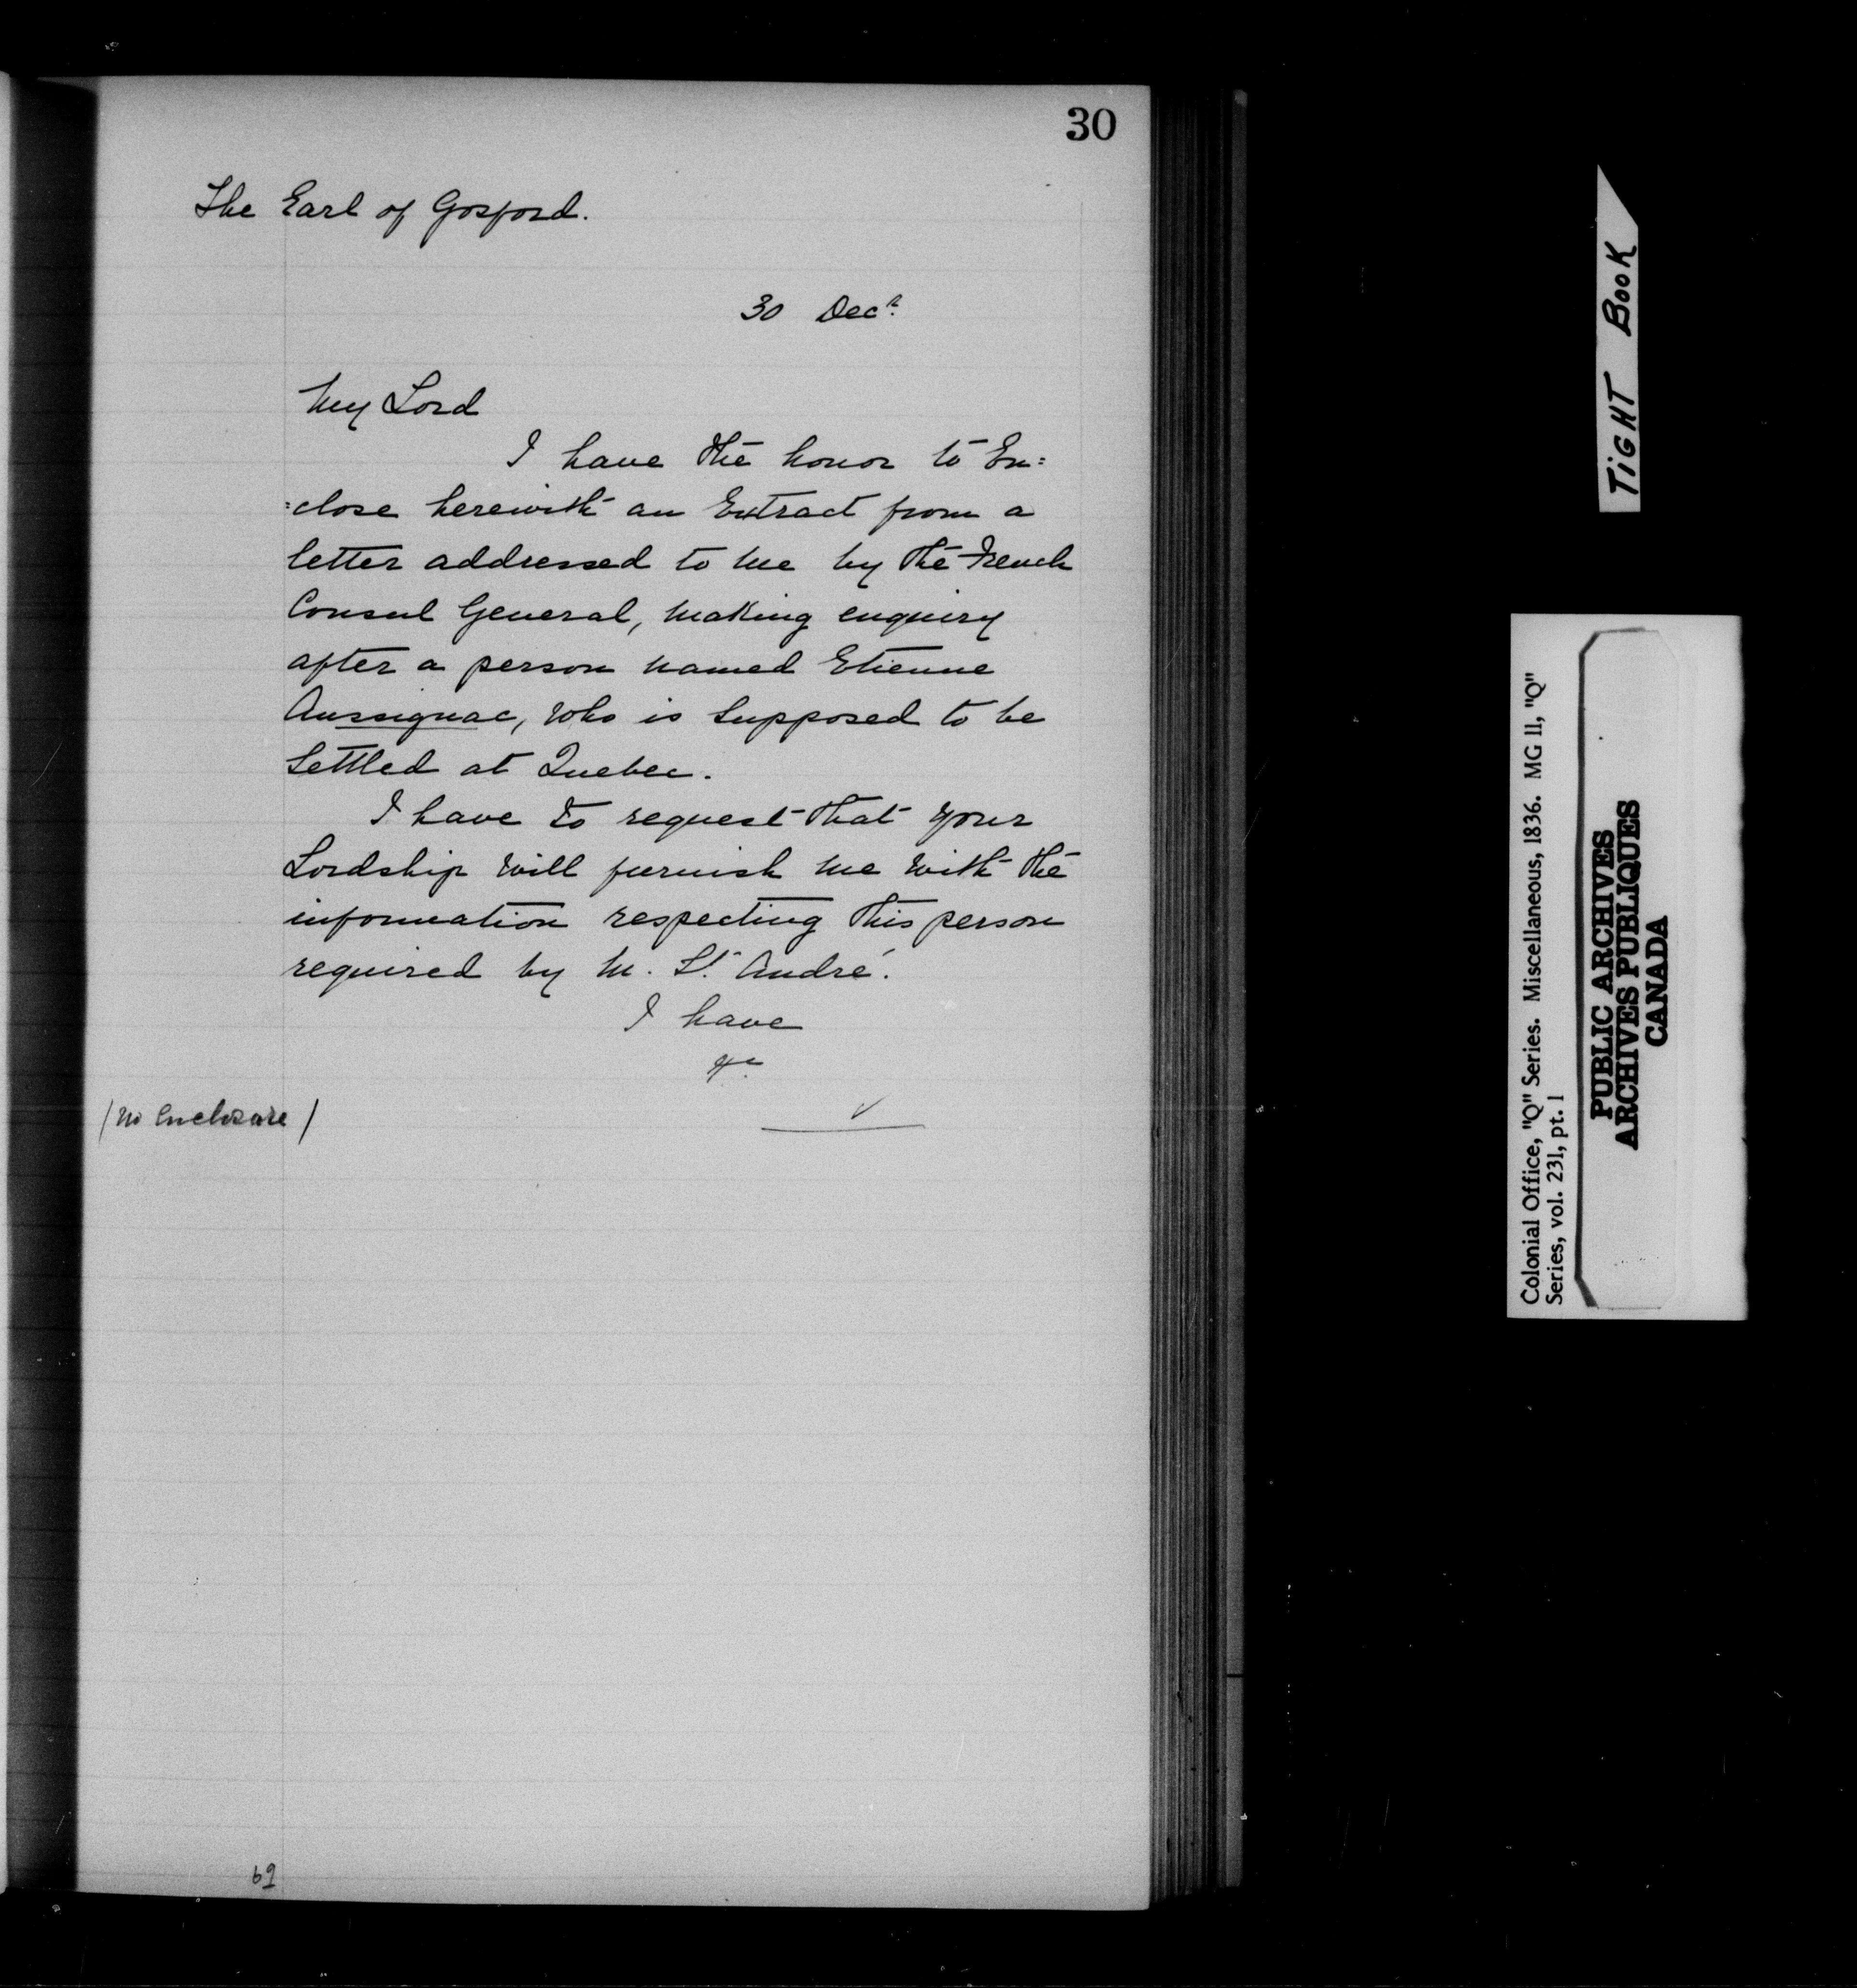 30
The Earl of Gosford.
30 Decr.
My Lord
I have the honor to En=
=close herewith an Extract from a
letter addressed to me by the French
Consul General, making enquiry
after a person named Etienne
Aussignac, who is supposed to be
Settled at Quebec.
I have to request that your
Lordship will furnish me with the
information respecting this person
required by M. St. André.
I have
&c.
(No Enclosure)
69
TIGHT BOOK
Colonial Office, "Q" Series. Miscellaneous, 1836. MG 11, "Q"
Series, vol. 231, pt. 1
PUBLIC ARCHIVES
ARCHIVES PUBLIQUES
CANADA